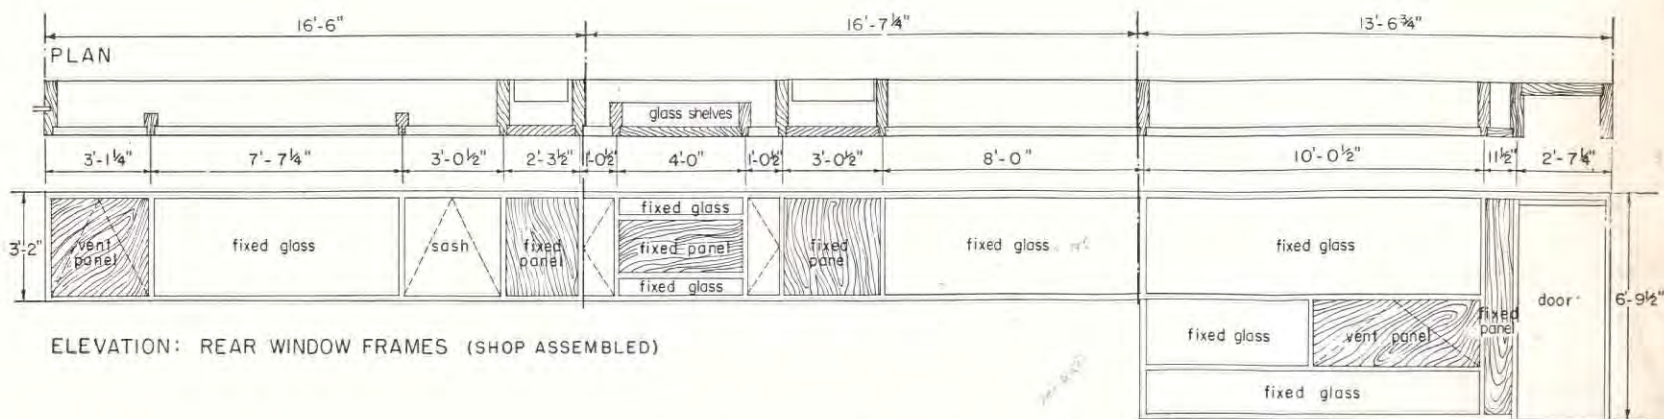 16'-6" 16'-7¼" 13'-6¾"
PLAN
glass shelves
3'-1¼" 7'-7¼" 3'-0½" 2'-3½" 1'-0½" 4'-0" 1'-0½" 3'-0½" 8'-0" 10'-0½" 11½" 2'-7¼"
3'-2"
vent panel
fixed glass
sash
fixed panel
fixed glass
fixed panel
fixed glass
fixed panel
fixed glass
fixed glass
fixed glass
vent panel
fixed panel
door
6'-9½"
fixed glass
ELEVATION: REAR WINDOW FRAMES (SHOP ASSEMBLED)